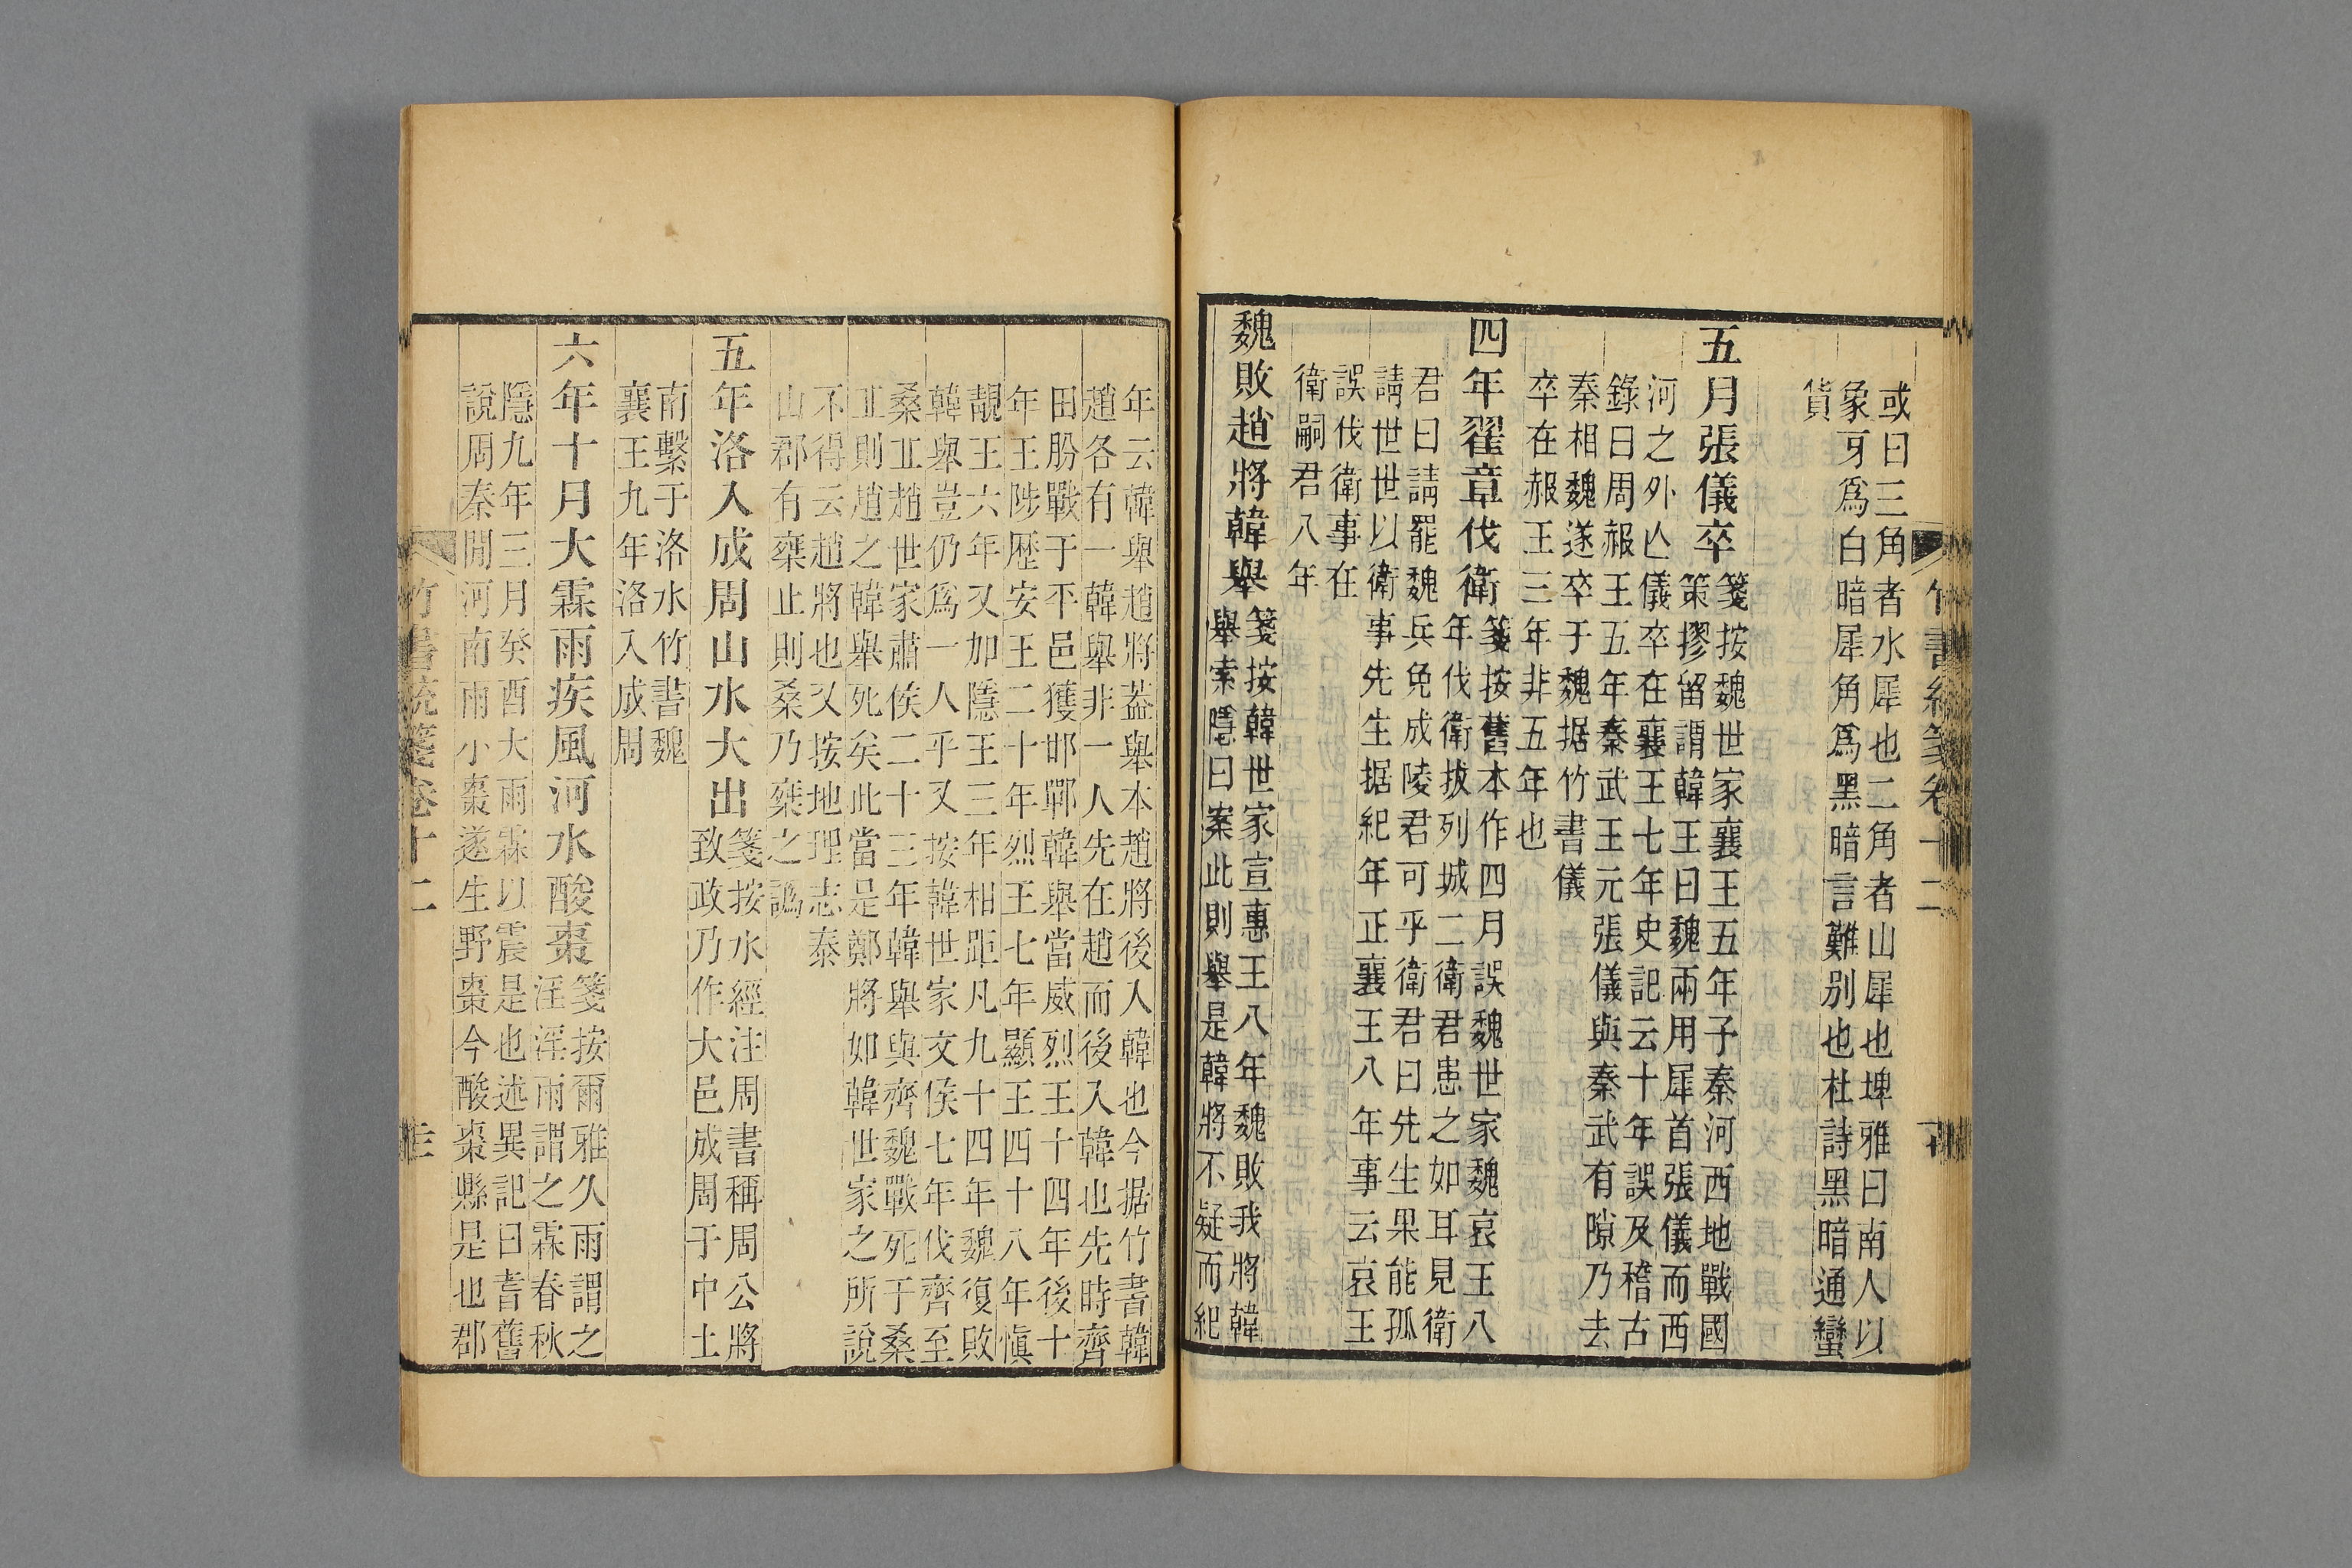 竹書統箋卷十二
或曰三角者水犀也二角者山犀也埤雅曰南人以
象牙爲白暗犀角爲黑暗言難別也杜詩黑暗通蠻
貨
五月張儀卒
箋按魏世家襄王五年子秦河西地戰國
策摎留謂韓王曰魏兩用犀首張儀而西
河之外亾儀卒在襄王七年史記云十年誤及稽古
錄曰周赧王五年秦武王元張儀與秦武有隙乃去
秦相魏遂卒于魏据竹書儀
卒在赧王三年非五年也
四年翟章伐衛
箋按舊本作四月誤魏世家魏哀王八
年伐衛拔列城二衛君患之如耳見衛
君曰請罷魏兵免成陵君可乎衛君曰先生果能孤
請世世以衛事先生据紀年正襄王八年事云哀王
誤伐衛事在
衛嗣君八年
魏敗趙將韓舉
箋按韓世家宣惠王八年魏敗我將韓
舉索隱曰案此則舉是韓將不疑而紀
年云韓舉趙將蓋舉本趙將後入韓也今据竹書韓
趙各有一韓舉非一人先在趙而後入韓也先時齊
田肦戰于平邑獲邯鄲韓舉當威烈王十四年後十
年王陟歷安王二十年烈王七年顯王四十八年愼
靚王六年又加隱王三年相距凡九十四年魏復敗
韓舉豈仍爲一人乎又按韓世家文侯七年伐齊至
桑丘趙世家肅侯二十三年韓舉與齊魏戰死于桑
丘則趙之韓舉死矣此當是鄭將如韓世家之所說
不得云趙將也又按地理志泰
山郡有椉止則桑乃椉之譌
五年洛入成周山水大出
箋按水經注周書稱周公將
致政乃作大邑成周于中土
南繫于洛水竹書魏
襄王九年洛入成周
六年十月大霖雨疾風河水酸棗
箋按爾雅久雨謂之
淫淫雨謂之霖春秋
隱九年三月癸酉大雨霖以震是也述異記曰耆舊
說周秦閒河南雨小棗遂生野棗今酸棗縣是也郡
竹書統箋卷十二